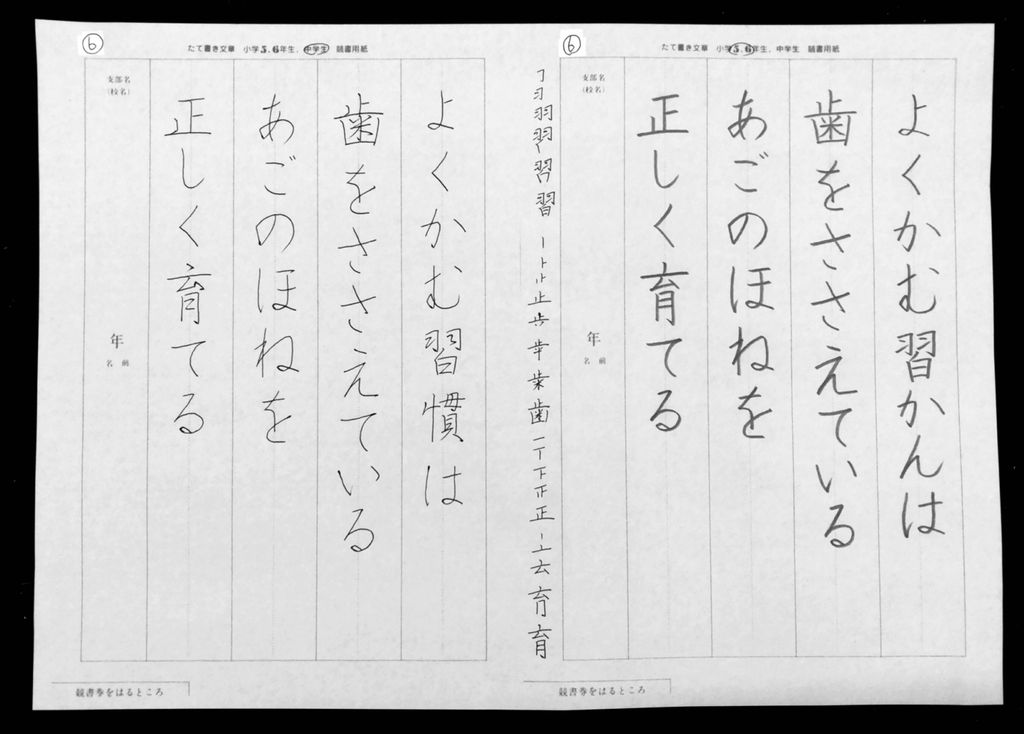 ⑥
たて書き文章 小学5.6年生、中学生 競書用紙
よくかむ習かんは
歯をささえている
あごのほねを
正しく育てる
支部名
(校名)
年
名前
競書券をはるところ
習
歯
正
育
⑥
たて書き文章 小学5.6年生、中学生 競書用紙
よくかむ習慣は
歯をささえている
あごのほねを
正しく育てる
支部名
(校名)
年
名前
競書券をはるところ